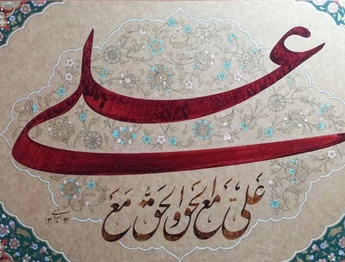 علی
عَلیّ مَعَ الحق والحقّ مَعَ